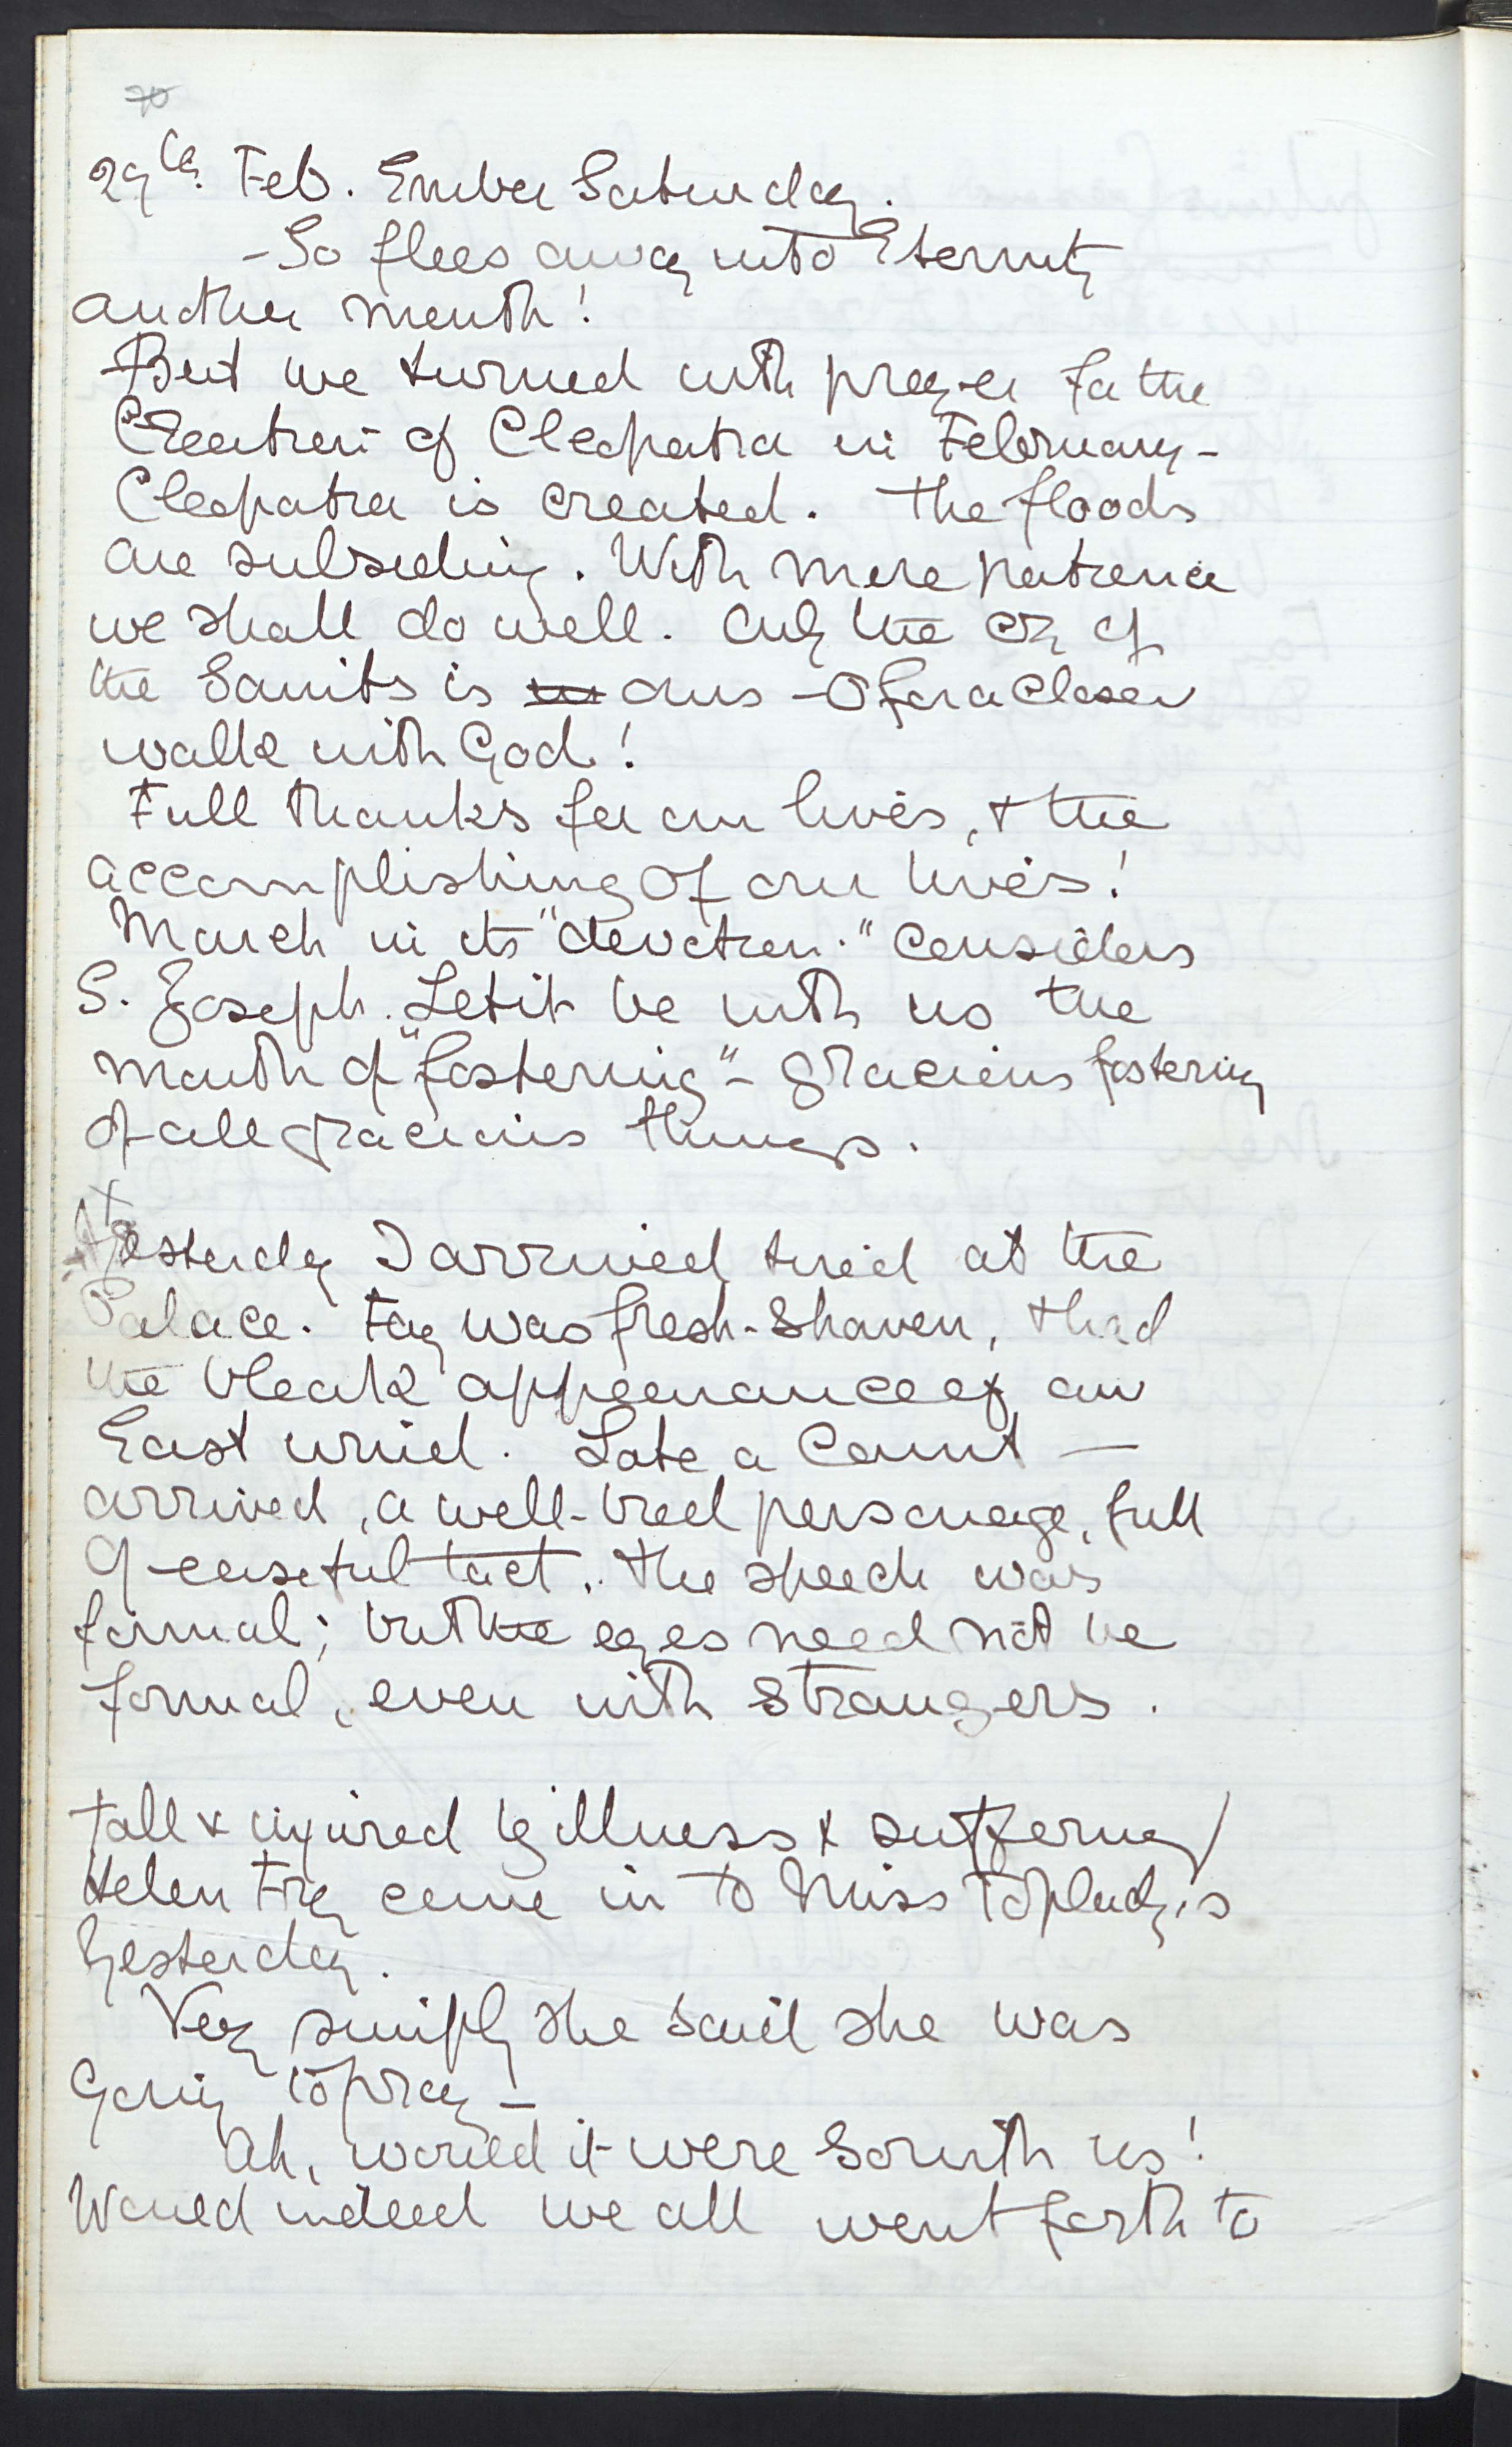 70
29th. Feb. Ember Saturday.
- So flees away into Eternity
another month!
But we turned with prayer for the
Creation of Cleopatra in February -
Cleopatra is created. The floods
are subsiding. With more patience
we shall do well. Only the cry of
the Saints is ours - O for a closer
walk with God!
Full thanks for our lives, & the
accomplishing of our lives!
March in its "devotion." considers
S. Joseph. Let it be with us the
month of "fostering" - gracious fostering
of all gracious things.
Yesterday I arrived tired at the
Palace. Fay was fresh-shaven, & had
the bleak appearance of an
East wind. Late a Count —
arrived, a well-bred personage, full
of easeful tact. The speech was
formal; but the eyes need not be
formal, even with strangers.
Tall & injured by illness & suffering /
Helen Fry came in to Miss Toplady's
yesterday.
Very simply she said she was
going to pray -
Ah, would it were so with us!
Would indeed we all went forth to